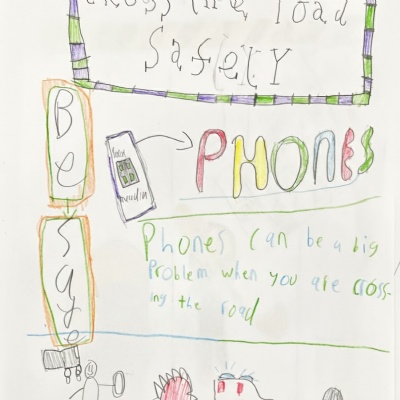 cross the road
SafelY
Be
Safe
PHONES
Phones can be a big
Problem when you are cross-
ing the road